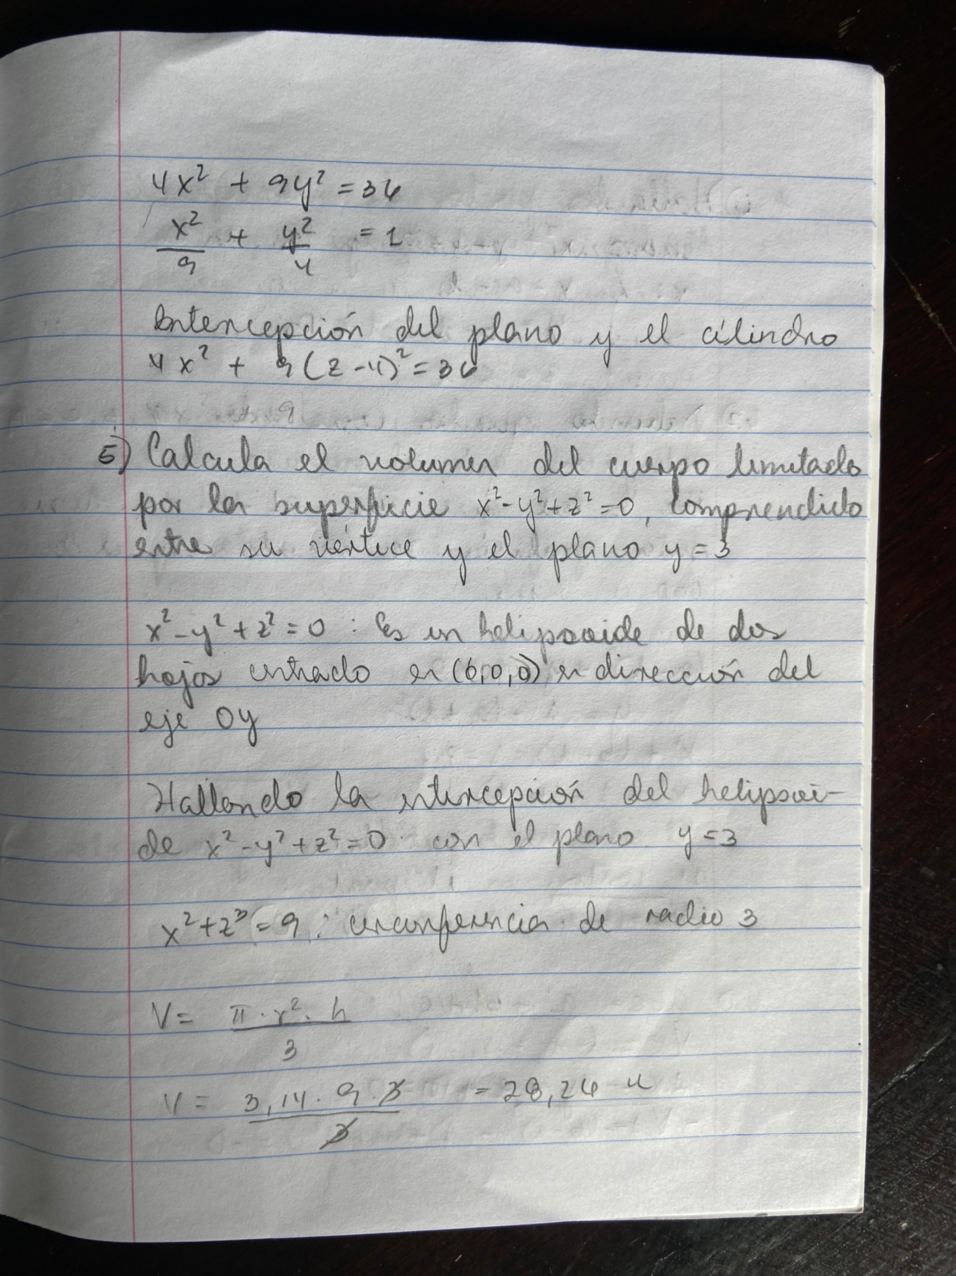 4x² + 9y² = 36
x²/9 + y²/4 = 1
Intercepción del plano y el cilindro
4x² + 9(z-4)² = 36
9
5) Calcula el volumen del cuerpo limitado
por la superficie x²-y²+z²=0, comprendido
entre su vértice y el plano y=3
x²-y²+z²=0 : Es un helipsoide de dos
hojas entrado en (0,0,0) en dirección del
eje Oy
Hallando la intercepción del helipsoi-
de x²-y²+z²=0 con el plano y=3
x²+z³=9 : circunferencia de radio 3
V = π·r²·h/3
V = 3,14·9·3/3 = 28,26 u